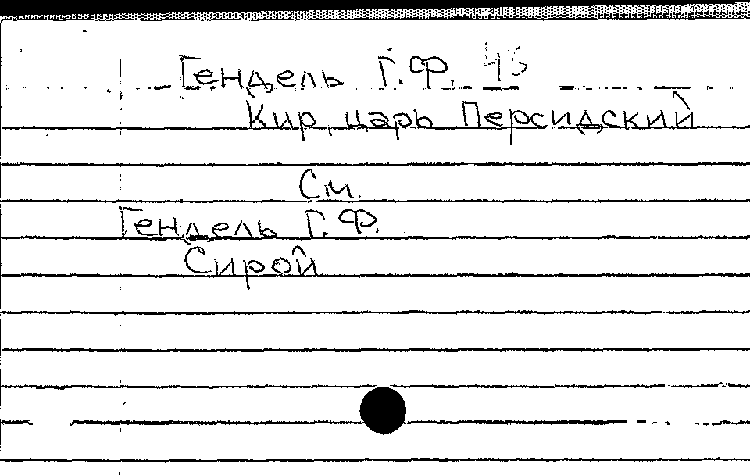 Гендель Г.Ф. 45
Кир, царь Персидский
См.
Гендель Г.Ф.
Сирой